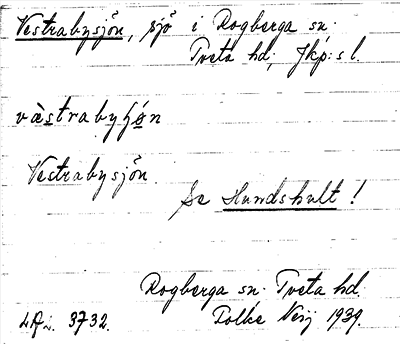 Vestrabysjön, sjö i Rogberga sn.
Tveta hd, Jkp:s l.
västrabyʃön
Vestrabysjön.
Se Hundshult!
Rogberga sn. Tveta hd.
LAi. 3732. Folke Neij 1939.